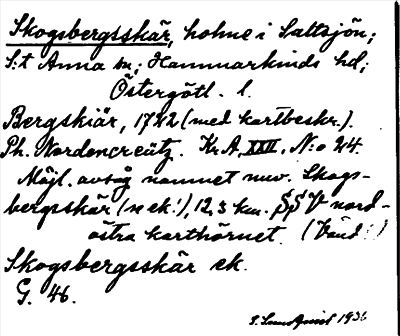 Skogsbergsskär, holme i Saltsjön;
S:t Anna sn; Hammarkinds hd;
Östergötl. l.
Bergskiär, 1722 (med kartbeskr.).
Ph. Nordencreütz. Kr.A. XXII. N:o 24.
Möjl. avsåg namnet nuv. Skogs-
bergsskär (se ek.!), 12,3 km. SSV nord-
östra karthörnet. (Vänd!)
Skogsbergsskär ek.
G. 46.
1936